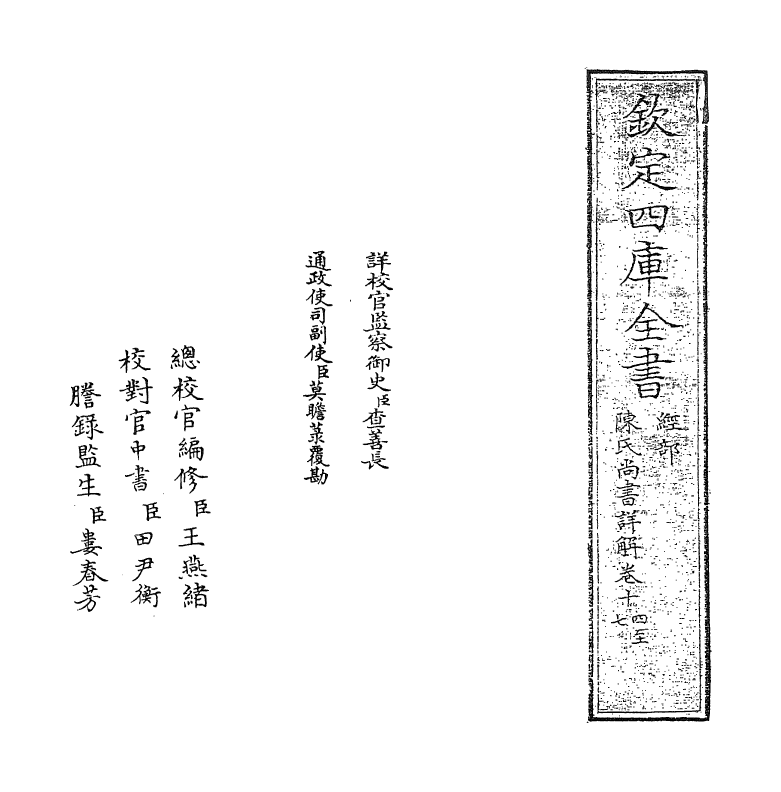 欽定四庫全書
經部
陳氏尚書詳解卷十四至七
詳校官監察御史臣查善長
通政使司副使臣莫瞻菉覆勘
總校官編修臣王燕緒
校對官中書臣田尹衡
謄錄監生臣婁春芳